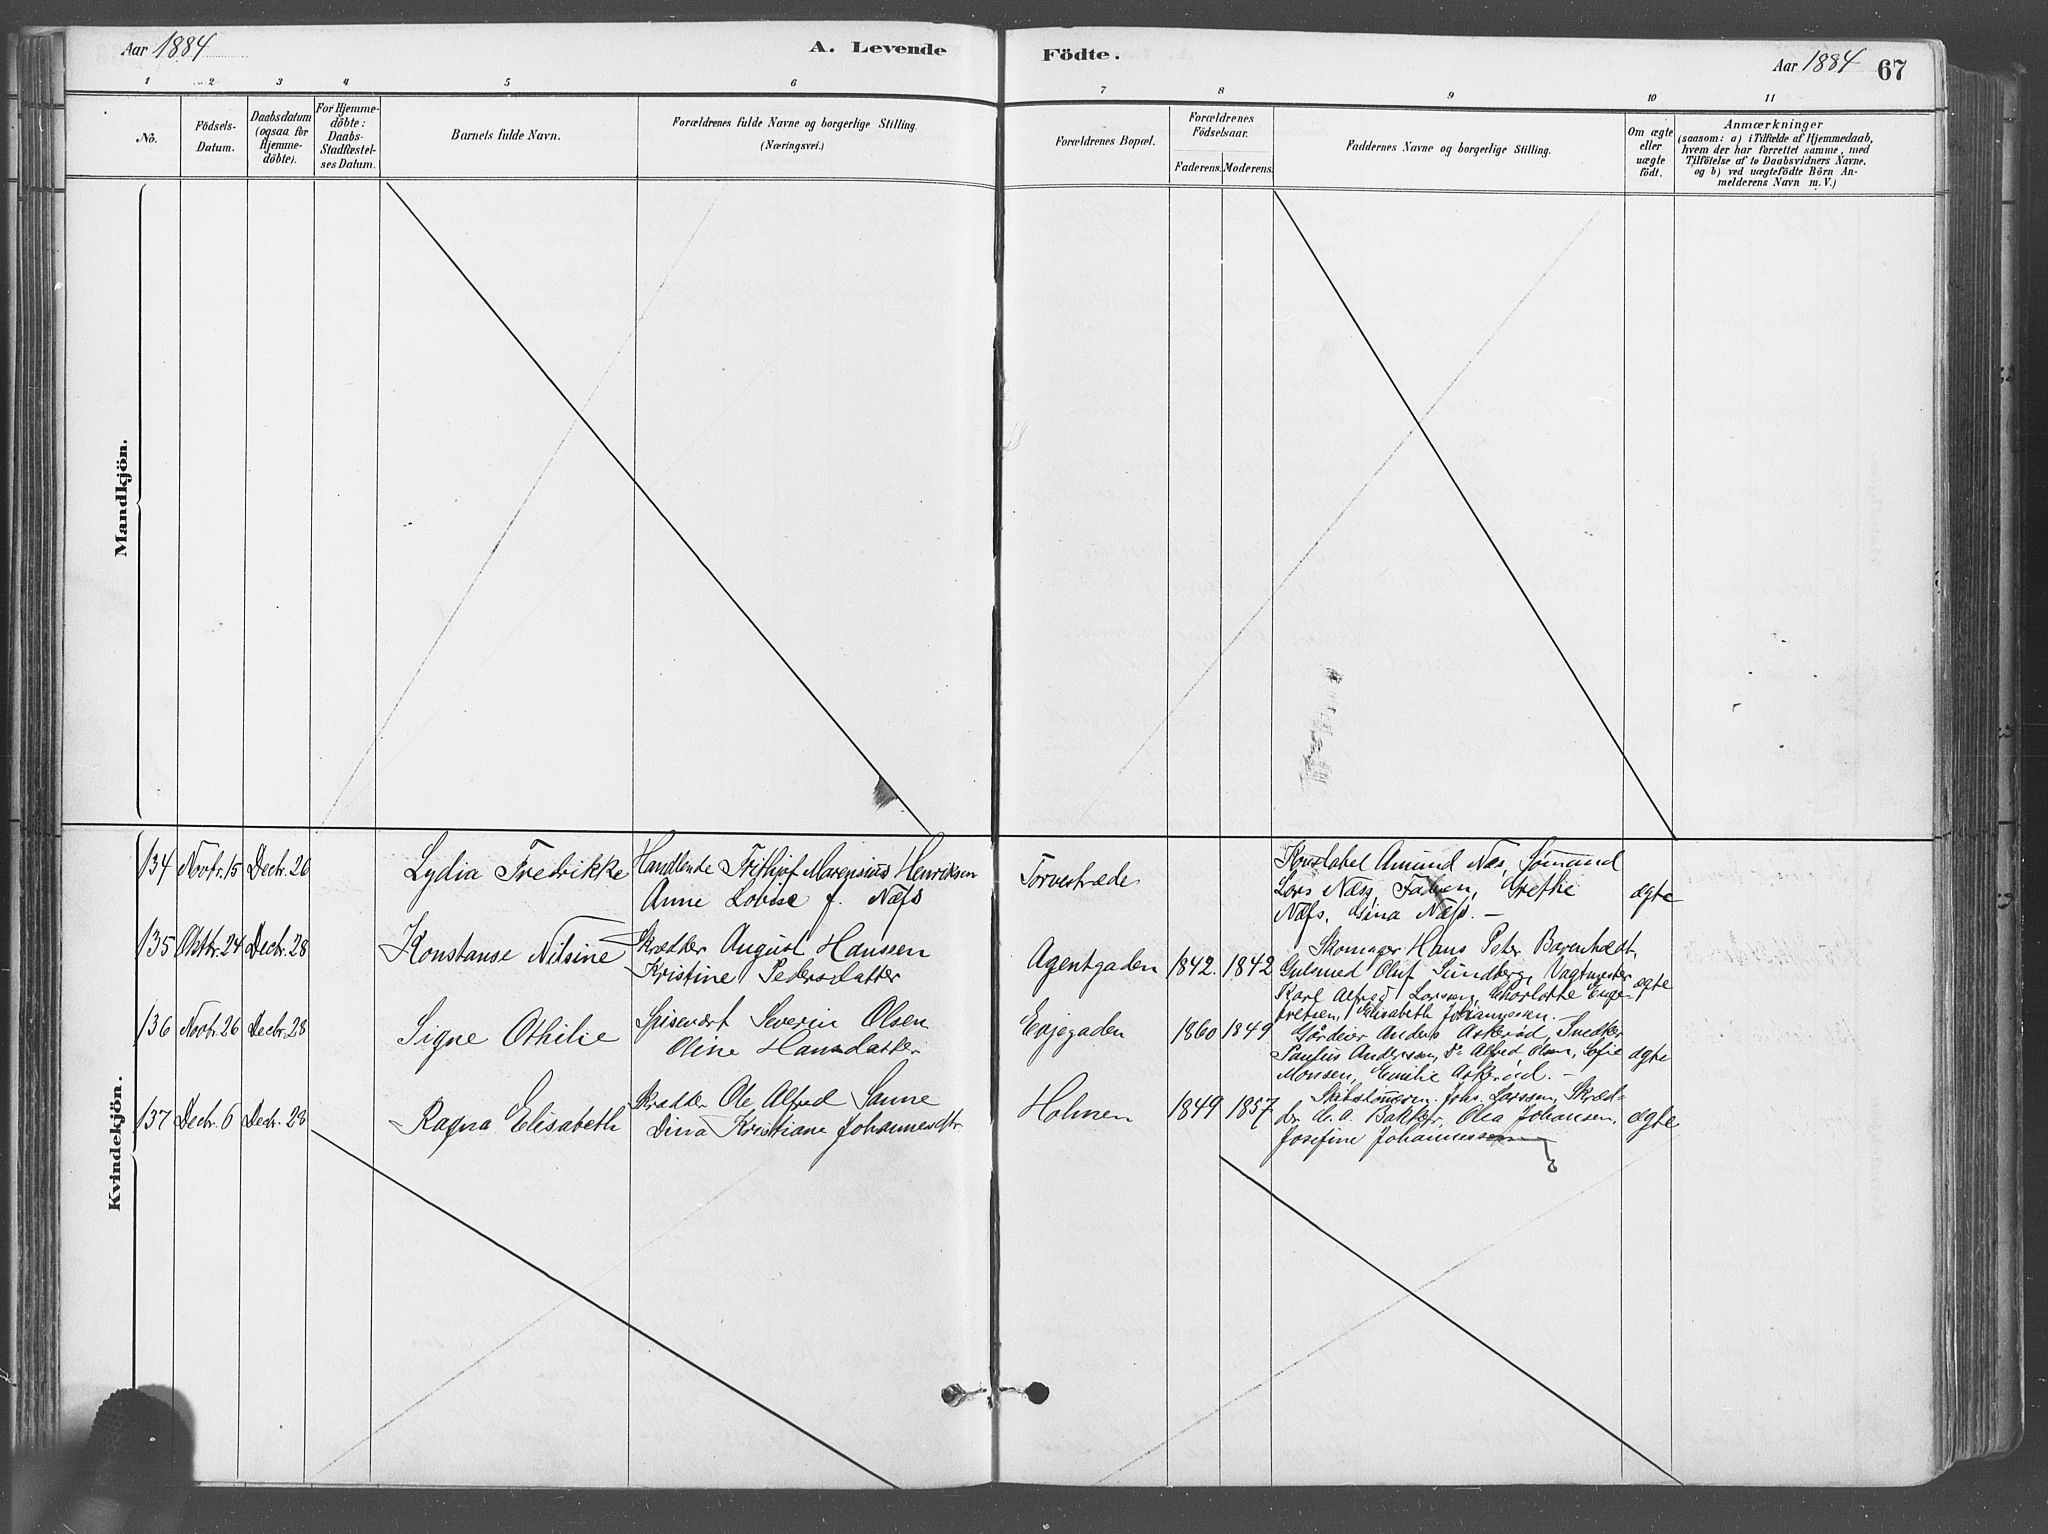 Aar 1884
A. Levende
Födte.
Aar 1884
67
1 2 3 4 5 6 7 8 9 10 11
Nô.
Födsels-
Datum.
Daabsdatum
(ogsaa for
Hjemme-
döbte).
For Hjemme-
döbte:
Daabs-
Stadfæstel-
ses Datum.
Barnets fulde Navn.
Forældrenes fulde Navne og borgerlige Stilling.
(Næringsvei.)
Forældrenes Bopæl.
Forældrenes
Födselsaar.
Faderens. Moderens.
Faddernes Navne og borgerlige Stilling.
Om ægte
eller
uægte
födt.
Anmærkninger
(saasom: a) i Tilfælde af Hjemmedaab,
hvem der har forrettet samme, med
Tilföielse af to Daabsvidners Navne.
og b) ved uægtefödte Börn An-
melderens Navn m. V.)
Mandkjön.
Kvindekjön.
134 Novbr. 15 Decbr. 26 Lydia Fredrikke
Handlende Frithjof Marensius Henriksen
Anne Lovise f. Næss
Torvestræde
Konstabel Amund Næs, Sömand
Lars Næss, Faderen, Grethe
Næss, Gina Næss. —
ægte
135 Oktbr. 24 Decbr. 28 Konstanse Nilsine
Skrædder August Hanssen
Kristine Pedersdatter
Agentgaden 1842. 1842
Skomager Hans Peter
Gulsmed Oluf Sundberg, Vagtmester
Karl Alfred Larssen, Charlotte Enge-
bretsen, Elisabeth Johannessen. —
ægte
136 Novbr. 26 Decbr. 28 Signe Othilie
Spisevært Severin Olsen
Oline Hansdatter
Evjegaden 1860 1849
Gårdeier Anders Askeröd, Snedker
Paulus Anderssen, Do Alfred Olsen, Sofie
Monsen, Emilie Askeröd. —
ægte
137 Decbr. 6 Decbr. 28 Ragna Elisabeth
Skrædder Ole Alfred Sanne
Dina Kristiane Johannesdtr.
Holmen 1849 1857
Skibstömrm. Johs. Larssen, Skræd-
der Olea Johansen,
Josefine Johannessen
ægte